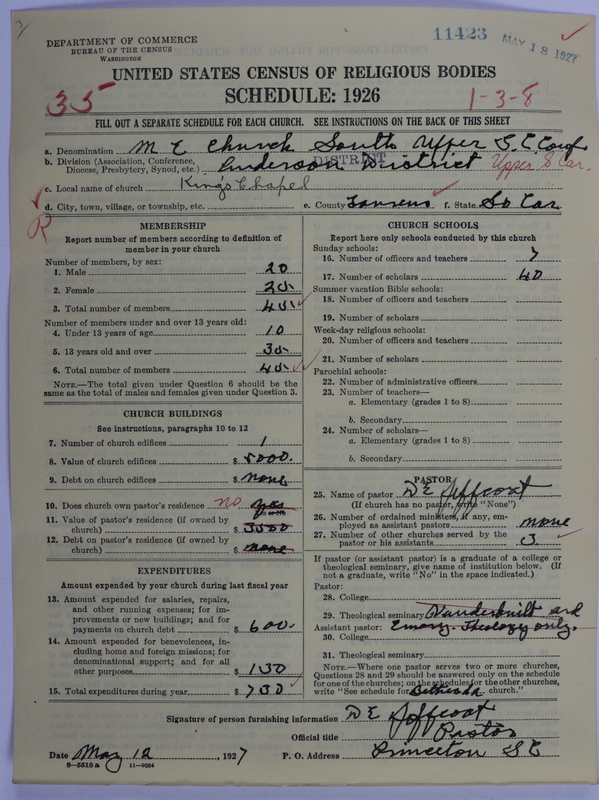 11423
MAY 18 1927
DEPARTMENT OF COMMERCE
BUREAU OF THE CENSUS
WASHINGTON
UNITED STATES CENSUS OF RELIGIOUS BODIES
SCHEDULE: 1926
35
1-3-8
FILL OUT A SEPARATE SCHEDULE FOR EACH CHURCH. SEE INSTRUCTIONS ON THE BACK OF THIS SHEET
a. Denomination M E Church South Upper S. C. Conf
b. Division (Association, Conference, Diocese, Presbytery, Synod, etc.) Anderson District DISTRICT Upper S Car.
c. Local name of church King's Chapel
d. City, town, village, or township, etc. e. County Laurens f. State So Car
R
MEMBERSHIP
Report number of members according to definition of member in your church
Number of members, by sex:
1. Male 20
2. Female 25
3. Total number of members 45
Number of members under and over 13 years old:
4. Under 13 years of age 10
5. 13 years old and over 35
6. Total number of members 45
NOTE.—The total given under Question 6 should be the same as the total of males and females given under Question 3.
CHURCH BUILDINGS
See instructions, paragraphs 10 to 12
7. Number of church edifices 1
8. Value of church edifices $ 5000.
9. Debt on church edifices $ none
10. Does church own pastor's residence no yes
11. Value of pastor's residence (if owned by church) $ 3500
12. Debt on pastor's residence (if owned by church) $ none
EXPENDITURES
Amount expended by your church during last fiscal year
13. Amount expended for salaries, repairs, and other running expenses; for improvements or new buildings; and for payments on church debt $ 600.
14. Amount expended for benevolences, including home and foreign missions; for denominational support; and for all other purposes $ 150
15. Total expenditures during year $ 750
CHURCH SCHOOLS
Report here only schools conducted by this church
Sunday schools:
16. Number of officers and teachers 7
17. Number of scholars 40
Summer vacation Bible schools:
18. Number of officers and teachers
19. Number of scholars
Week-day religious schools:
20. Number of officers and teachers
21. Number of scholars
Parochial schools:
22. Number of administrative officers
23. Number of teachers—
a. Elementary (grades 1 to 8)
b. Secondary
24. Number of scholars—
a. Elementary (grades 1 to 8)
b. Secondary
PASTOR
25. Name of pastor D E Jeffcoat
(If church has no pastor, write "None")
26. Number of ordained ministers, if any, employed as assistant pastors none
27. Number of other churches served by the pastor or his assistants 3
If pastor (or assistant pastor) is a graduate of a college or theological seminary, give name of institution below. (If not a graduate, write "No" in the space indicated.)
Pastor:
28. College
29. Theological seminary Vanderbuilt and
Assistant pastor: Emory. Theology only.
30. College
31. Theological seminary
NOTE.—Where one pastor serves two or more churches, Questions 28 and 29 should be answered only on the schedule for one of the churches; on the schedules for the other churches, write "See schedule for Bethesda church."
Signature of person furnishing information D E Jeffcoat
Official title Pastor
Date May 12, 1927 P. O. Address Princeton S C
8—5518 a 11—9034